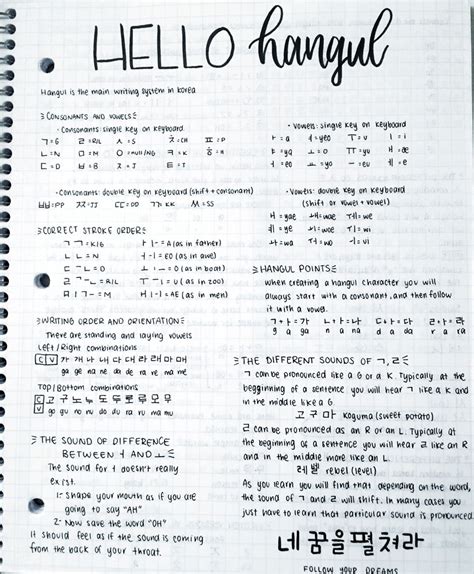 HELLO hangul
Hangul is the main writing system in korea
CONSONANTS AND VOWELS
· Consonants: single key on keyboard
ㄱ=G ㄹ=R/L ㅅ=S ㅊ=CH ㅍ=P
ㄴ=N ㅁ=M ㅇ=null/NG ㅋ=K ㅎ=H
ㄷ=D ㅂ=B ㅈ=J ㅌ=T
· Vowels: single key on keyboard
ㅏ=a ㅕ=yeo ㅜ=u ㅣ=i
ㅑ=ya ㅗ=o ㅠ=yu ㅐ=ae
ㅓ=eo ㅛ=yo ㅡ=eu ㅔ=e
· Consonants: double key on keyboard (shift + consonant)
ㅃ=PP ㅉ=JJ ㄸ=DD ㄲ=KK ㅆ=SS
· Vowels: double key on keyboard
(shift or vowel + vowel)
CORRECT STROKE ORDER:
HANGUL POINTS
when creating a hangul character you will
always start with a consonant, and then follow
it with a vowel.
ㄱ+ㅏ=가 ㄴ+ㅏ=나 ㄷ+ㅏ=다 ㄹ+ㅏ=라
g a ga n a na d a da r a ra
WRITING ORDER AND ORIENTATION:
There are standing and laying vowels
Left/Right combinations
C V 가 개 나 내 다 대 라 래 마 매
ga gae na nae da dae ra rae ma mae
Top/Bottom combinations
C V 고 구 노 누 도 두 로 루 모 무
go gu no nu do du ro ru mo mu
THE DIFFERENT SOUNDS OF ㄱ,ㄹ
ㄱ can be pronounced like a G or a K. Typically at the
beggining of a sentence you will hear ㄱ like a K and
in the middle like a G.
고구마 koguma (sweet potato)
ㄹ can be pronounced as an R or an L. Typically at
the beginning of a sentence you will hear ㄹ like an R
and in the middle more like an L.
레벨 rebel (level)
As you learn you will find that depending on the word,
the sound of ㄱ and ㄹ will shift. In many cases you
just have to learn that particular sound is pronounced
THE SOUND OF DIFFERENCE
BETWEEN ㅓ AND ㅗ
The sound for ㅓ doesn't really
exist.
1. Shape your mouth as if you are
going to say "AH"
2. Now save the word "OH"
It should feel as if the sound is coming
from the back of your throat.
네 꿈을 펼쳐라
FOLLOW YOUR DREAMS